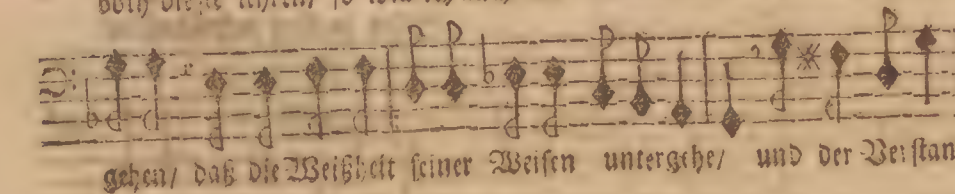 gehen/ daß die Weißheit seiner Weisen untergehe/ und der Verstan